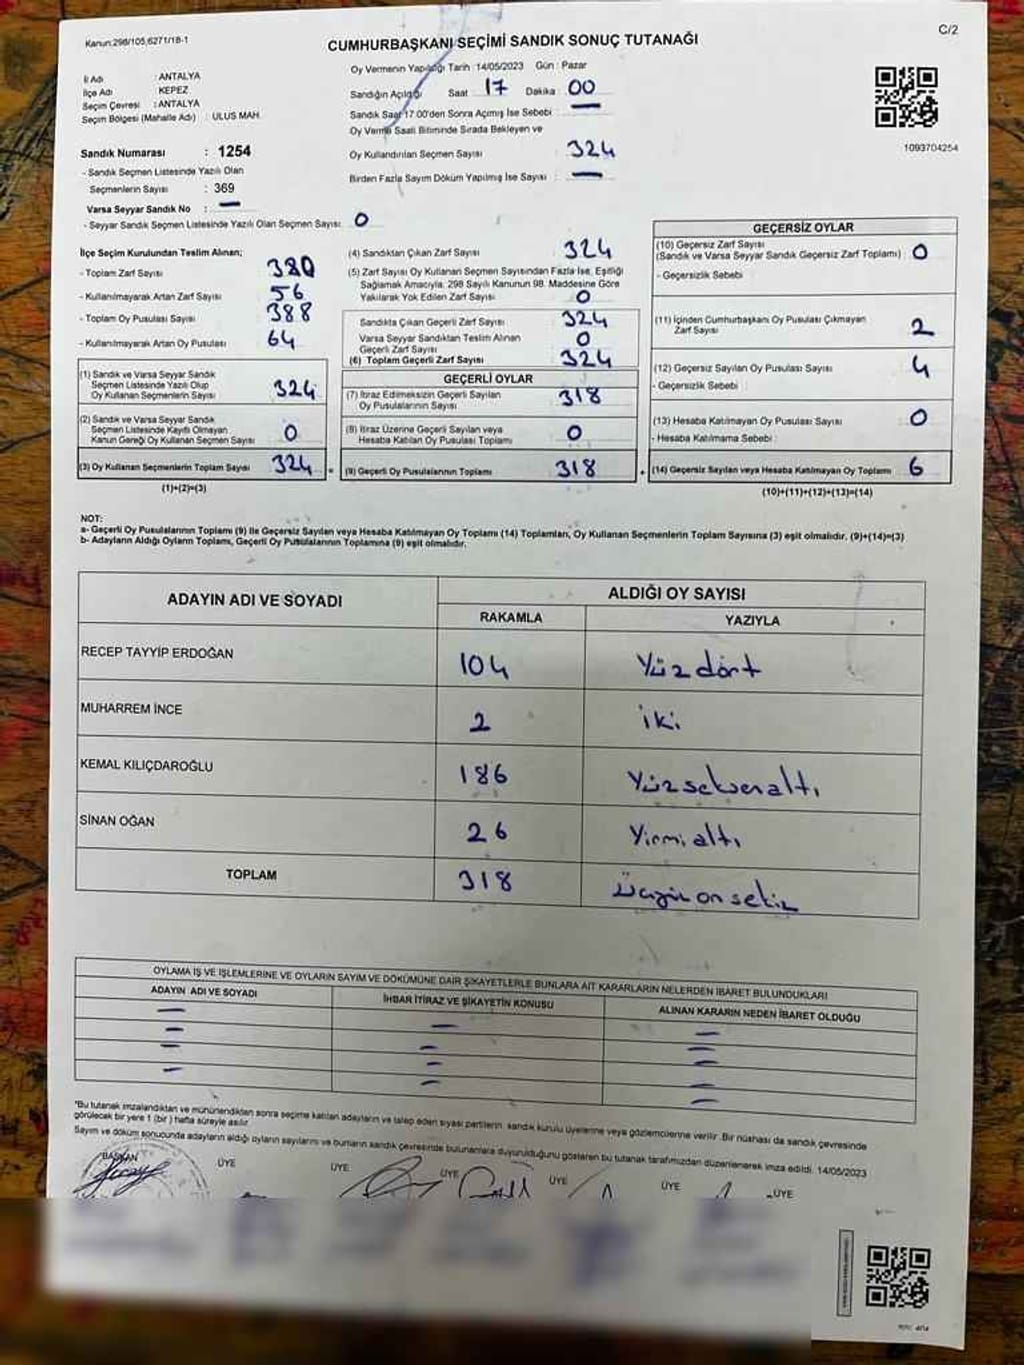 Kanun:298/105,6271/18-1
C/2
CUMHURBAŞKANI SEÇİMİ SANDIK SONUÇ TUTANAĞI
İl Adı : ANTALYA
İlçe Adı : KEPEZ
Seçim Çevresi : ANTALYA
Seçim Bölgesi (Mahalle Adı) : ULUS MAH.
Oy Vermenin Yapıldığı Tarih :14/05/2023 Gün : Pazar
Sandığın Açıldığı Saat 17 Dakika 00
Sandık Saat 17:00'den Sonra Açımış İse Sebebi : —
Oy Verme Saati Bitiminde Sırada Bekleyen ve
Oy Kullandırılan Seçmen Sayısı 324
Birden Fazla Sayım Döküm Yapılmış İse Sayısı : —
1093704254
Sandık Numarası : 1254
- Sandık Seçmen Listesinde Yazılı Olan
Seçmenlerin Sayısı : 369
Varsa Seyyar Sandık No : —
- Seyyar Sandık Seçmen Listesinde Yazılı Olan Seçmen Sayısı: 0
İlçe Seçim Kurulundan Teslim Alınan;
- Toplam Zarf Sayısı 380
- Kullanılmayarak Artan Zarf Sayısı 56
- Toplam Oy Pusulası Sayısı 388
- Kullanılmayarak Artan Oy Pusulası 64
(1) Sandık ve Varsa Seyyar Sandık
Seçmen Listesinde Yazılı Olup
Oy Kullanan Seçmenlerin Sayısı 324
(2) Sandık ve Varsa Seyyar Sandık
Seçmen Listesinde Kayıtlı Olmayan
Kanun Gereği Oy Kullanan Seçmen Sayısı 0
(3) Oy Kullanan Seçmenlerin Toplam Sayısı 324 =
(1)+(2)=(3)
(4) Sandıktan Çıkan Zarf Sayısı 324
(5) Zarf Sayısı Oy Kullanan Seçmen Sayısından Fazla İse, Eşitliği
Sağlamak Amacıyla: 298 Sayılı Kanunun 98. Maddesine Göre
Yakılarak Yok Edilen Zarf Sayısı 0
Sandıkta Çıkan Geçerli Zarf Sayısı 324
Varsa Seyyar Sandıktan Teslim Alınan
Geçerli Zarf Sayısı 0
(6) Toplam Geçerli Zarf Sayısı 324
GEÇERLİ OYLAR
(7) İtiraz Edilmeksizin Geçerli Sayılan
Oy Pusulalarının Sayısı 318
(8) İtiraz Üzerine Geçerli Sayılan veya
Hesaba Katılan Oy Pusulası Toplamı 0
(9) Geçerli Oy Pusulalarının Toplamı 318 +
GEÇERSİZ OYLAR
(10) Geçersiz Zarf Sayısı
(Sandık ve Varsa Seyyar Sandık Geçersiz Zarf Toplamı) : 0
- Geçersizlik Sebebi :
(11) İçinden Cumhurbaşkanı Oy Pusulası Çıkmayan
Zarf Sayısı 2
(12) Geçersiz Sayılan Oy Pusulası Sayısı 4
- Geçersizlik Sebebi :
(13) Hesaba Katılmayan Oy Pusulası Sayısı 0
- Hesaba Katılmama Sebebi :
(14) Geçersiz Sayılan veya Hesaba Katılmayan Oy Toplamı 6
(10)+(11)+(12)+(13)=(14)
NOT:
a- Geçerli Oy Pusulalarının Toplamı (9) ile Geçersiz Sayılan veya Hesaba Katılmayan Oy Toplamı (14) Toplamları, Oy Kullanan Seçmenlerin Toplam Sayısına (3) eşit olmalıdır. (9)+(14)=(3)
b- Adayların Aldığı Oyların Toplamı, Geçerli Oy Pusulalarının Toplamına (9) eşit olmalıdır.
ADAYIN ADI VE SOYADI
ALDIĞI OY SAYISI
RAKAMLA YAZIYLA
RECEP TAYYİP ERDOĞAN 104 Yüz dört
MUHARREM İNCE 2 iki
KEMAL KILIÇDAROĞLU 186 Yüz seksen altı
SİNAN OĞAN 26 Yirmi altı
TOPLAM 318 Üçyüz on sekiz
OYLAMA İŞ VE İŞLEMLERİNE VE OYLARIN SAYIM VE DÖKÜMÜNE DAİR ŞİKAYETLERLE BUNLARA AİT KARARLARIN NELERDEN İBARET BULUNDUKLARI
ADAYIN ADI VE SOYADI İHBAR İTİRAZ VE ŞİKAYETİN KONUSU ALINAN KARARIN NEDEN İBARET OLDUĞU
— — —
— — —
— — —
— — —
*Bu tutanak imzalandıktan ve mühürlendikten sonra seçime katılan adayların ve talep eden siyasi partilerin sandık kurulu üyelerine veya gözlemcilerine verilir. Bir nüshası da sandık çevresinde
görülecek bir yere 1 (bir) hafta süreyle asılır.
Sayım ve döküm sonucunda adayların aldığı oyların sayılarını ve bunların sandık çevresinde bulunanlara duyurulduğunu gösteren bu tutanak tarafımızdan düzenlenerek imza edildi. 14/05/2023
BAŞKAN ÜYE ÜYE ÜYE ÜYE ÜYE ÜYE